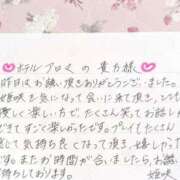 ホテルプロマの貴方様
昨日はお誘い頂きありがとうございました。
姫咲を気になって会いに来て頂き、とても
楽しい方で、たくさん笑ってお話し
できてすごく楽しかったです。プレイでたくさん
感じて気持ち良くなって頂き、嬉しかった
またお時間が合いましたら、お誘い
待ちしております。
姫咲